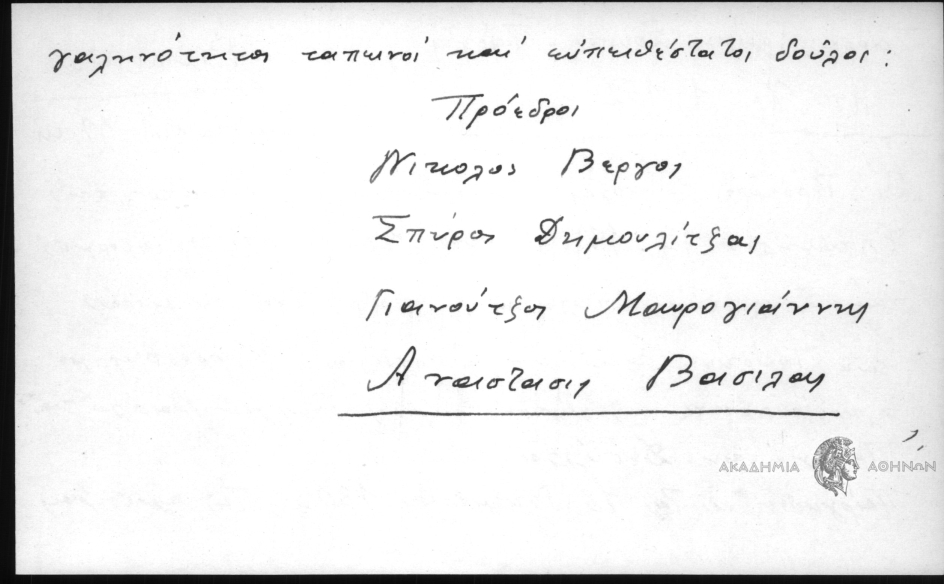 γαληνότητος ταπεινοί καί εὐπειθέστατοι δοῦλοι :
Πρόεδροι
Νικολος Βεργος
Σπύρος Δημουλίτζας
Γιανούτζος Μαυρογιάννης
Αναστασις Βασιλας
ΑΚΑΔΗΜΙΑ ΑΘΗΝΩΝ